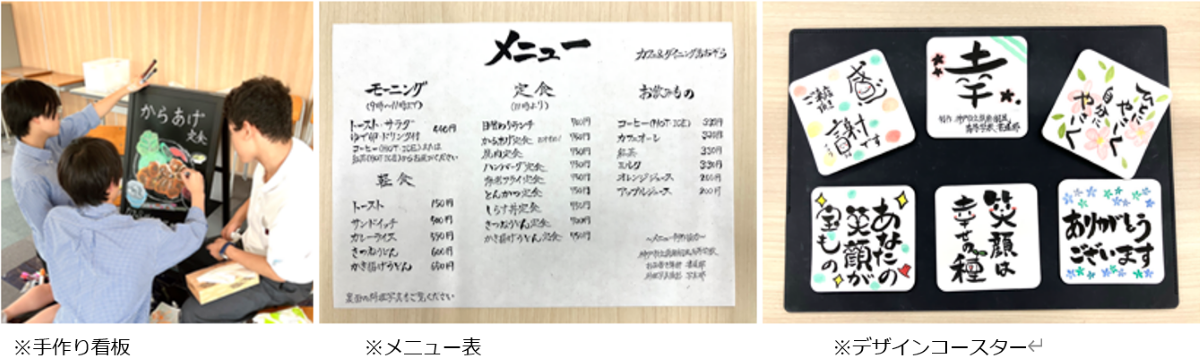 からあげ
定食
メニュー
モーニング
(9時～11時まで)
トースト・サラダ
ゆで卵・ドリンク付
コーヒー(HOT・ICE)または
440円
軽食
トースト 150円
サンドイッチ 500円
カレーライス 550円
きつねうどん 600円
かき揚げうどん 650円
裏面の料理写真もご覧ください
定食
(11時より)
日替わりランチ
からあげ定食
焼肉定食 750円
ハンバーグ定食 750円
とんかつ定食 750円
しらす丼定食
きつねうどん定食 700円
かき揚げうどん定食 750円
お飲みもの
コーヒー(HOT・ICE) 320円
カフェオーレ 320円
紅茶 320円
ミルク 320円
オレンジジュース 200円
アップルジュース 200円
ご来店
頂き
感謝です
幸
あなたの
笑顔が
宝もの
笑顔は
幸せの種
ありがとう
ございます
※手作り看板
※メニュー表
※デザインコースター↵